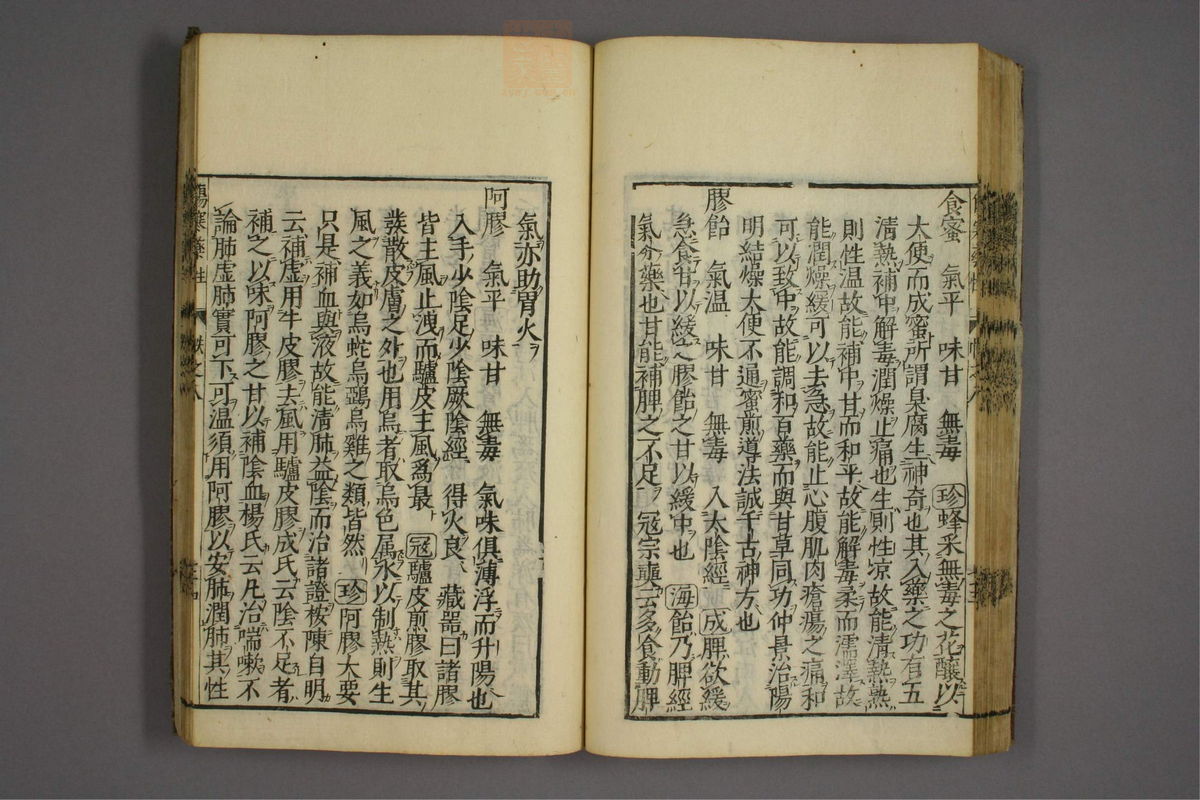 食蜜　氣平　味甘　無毒　珍蜂采無毒之花釀以
大便而成蜜所謂臭腐生神奇也其入藥之功有五
淸熱補中解毒潤燥止痛也生則性凉故能淸熱熱
則性温故能補中甘而和平故能解毒柔而濡澤故
能潤燥緩可以去急故能止心腹肌肉瘡瘍之痛和
可以致中故能調和百藥而與甘草同功仲景治陽
明結燥大便不通蜜煎導法誠千古神方也
膠飴　氣温　味甘　無毒　入太陰經　成脾欲緩
急食甘以緩之膠飴之甘以緩中也　海飴乃脾經
氣分藥也甘能補脾之不足　冦宗奭云多食動脾
氣亦助胃火
阿膠　氣平　味甘　無毒　氣味俱薄浮而升陽也
入手少陰足少陰厥陰經　得火良　藏器曰諸膠
皆主風止洩而驢皮主風爲最　冦驢皮煎膠取其
發散皮膚之外也用烏者取烏色属水以制熱則生
風之義如烏蛇烏鵶烏雞之類皆然　珍阿膠大要
只是補血與液故能淸肺益陰而治諸證桉陳自明
云補虛用牛皮膠去風用驢皮膠成氏云陰不足者
補之以味阿膠之甘以補陰血楊氏云凡治喘嗽不
論肺虛肺實可下可温須用阿膠以安肺潤肺其性
傷寒藥性　帙之八